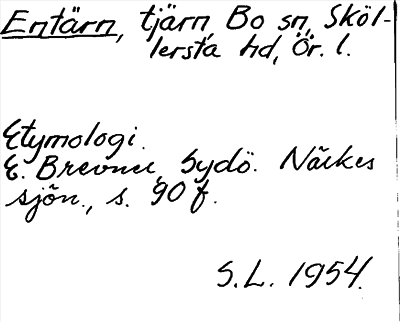 Entärn, tjärn, Bo sn, Sköl-
lersta hd, Ör. l.
Etymologi.
E. Brevner, Sydö. Närkes
sjön., s. 90 f.
S.L. 1954.